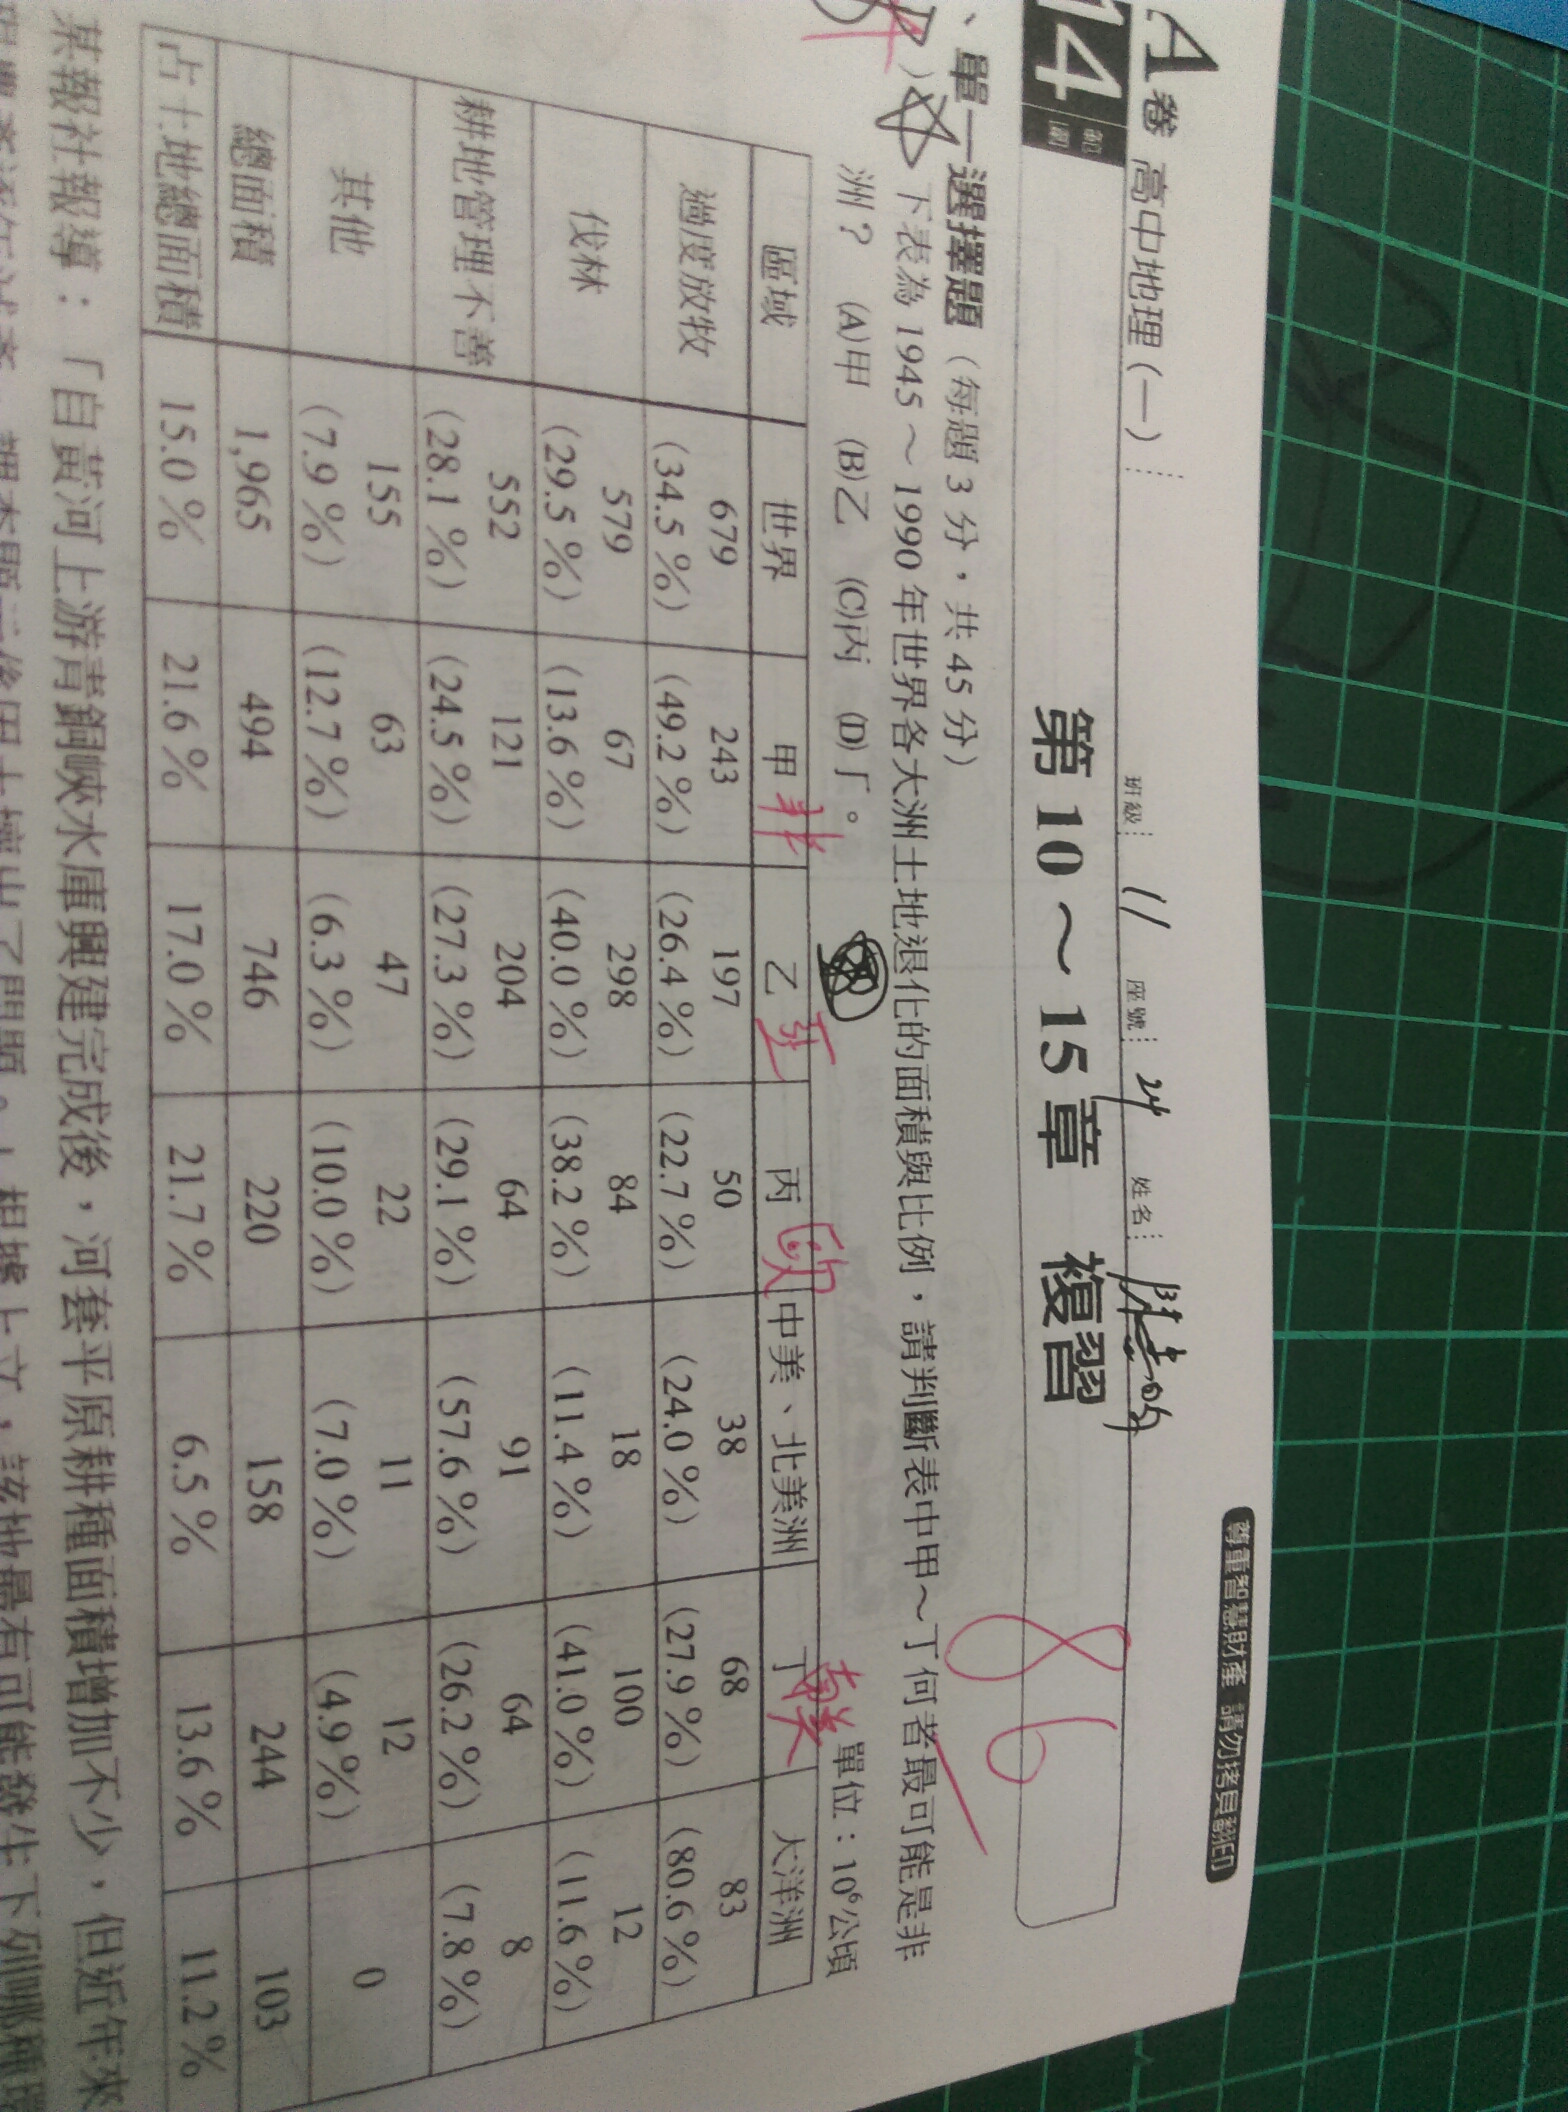 尊重智慧財產 請勿拷貝翻印
A卷 高中地理(一)
班級: 11 座號: 24 姓名:
14 範圍 第 10 ～ 15 章 複習
86
、單一選擇題（每題 3 分，共 45 分）
）☆ 下表為 1945 ～ 1990 年世界各大洲土地退化的面積與比例，請判斷表中甲～丁何者最可能是非
洲？ (A)甲 (B)乙 (C)丙 (D)丁。
單位：10⁶公頃
區域 世界 甲 非 乙 亞 丙 歐 中美、北美洲 丁 南美 大洋洲
過度放牧 679 243 197 50 38 68 83
(34.5 %) (49.2 %) (26.4 %) (22.7 %) (24.0 %) (27.9 %) (80.6 %)
伐林 579 67 298 84 18 100 12
(29.5 %) (13.6 %) (40.0 %) (38.2 %) (11.4 %) (41.0 %) (11.6 %)
耕地管理不善 552 121 204 64 91 64 8
(28.1 %) (24.5 %) (27.3 %) (29.1 %) (57.6 %) (26.2 %) (7.8 %)
其他 155 63 47 22 11 12 0
(7.9 %) (12.7 %) (6.3 %) (10.0 %) (7.0 %) (4.9 %)
總面積 1,965 494 746 220 158 244 103
占土地總面積 15.0 % 21.6 % 17.0 % 21.7 % 6.5 % 13.6 % 11.2 %
某報社報導：「自黃河上游青銅峽水庫興建完成後，河套平原耕種面積增加不少，但近年來